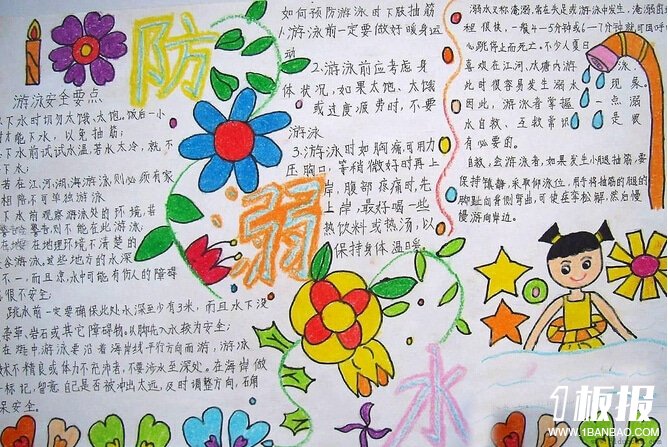 防
溺
水
游泳安全要点
下水时切勿太饿、太饱。饭后一小
才能下水,以免抽筋;
下水前试试水温,若水太冷,就不
下水;
若在江、河、湖、海游泳,则必须有
相陪,不可单独游泳
下水前观察游泳处的环境,若
则不能在此游泳
在地理环境不清楚的
游泳。这些地方的水深
不一,而且凉,水中可能有伤人的障碍
很不安全;
跳水前一定要确保此处水深至少有3米,而且水下没
杂草、岩石或其它障碍物。以脚先入水较为安全;
在海中游泳,要沿着海岸线平行方向而游,游泳
技术不精良或体力不充沛者,不要涉水至深处。在海岸做
标记,留意自己是否被冲出太远,及时调整方向,
保安全。
如何预防游泳时下肢抽筋
1.游泳前一定要做好暖身运
动
2.游泳前应考虑身
体状况,如果太饱、太饿
或过度疲劳时,不要
游泳
3.游泳时如胸痛,可用力
压胸口,等稍微好时再上
岸,腹部疼痛时,先
上岸,最好喝一些
热饮料或热汤,以
保持身体温暖。
溺水又称淹溺,
程很快,一般4—5分钟或6—7分钟就可因呼
跳得上而死亡。不少人夏日
喜欢在江河、水塘内游泳、
此时很容易发生溺水现象。
因此,游泳者掌握一点溺
水自救、互救常识是很
有必要的。
自救,会游泳者,如果发生小腿抽筋,要
保持镇静,采取仰泳位,用手将抽筋的腿的
脚趾向背侧弯曲,可使痉挛松解,然后慢
慢游向岸边。
1板报
WWW.1BANBAO.COM